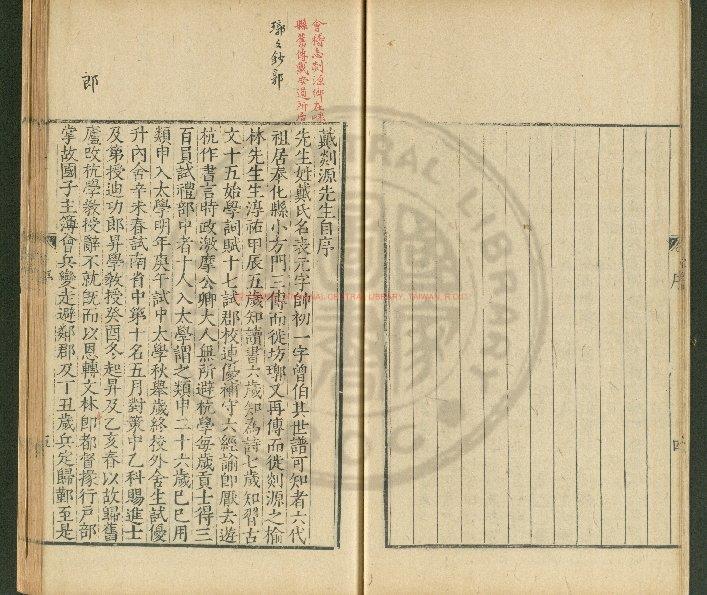 會稽志剡源鄉在嵊
縣舊傳戴安道所居
瑯之鈔郭
郎
戴剡源先生自序
先生姓戴氏名表元字帥初一字曾伯其世譜可知者六代
祖居奉化縣小方門三傳而徙坊瑯又再傳而徙剡源之榆
林先生生淳祐甲辰五歲知讀書六歲知為詩七歲知習古
文十五始學詞賦十七試郡校連優補守六經諭即厭去遊
杭作書言時政激摩公卿大人無所避杭學每歲貢士得三
百員試禮部中者十人入太學謂之類申二十六歲己巳用
類申入太學明年庚午試中太學秋舉歲終校外舍生試優
升內舍辛未春試南省中第十名五月對策中乙科賜進士
及第授迪功郎昇學教授癸酉冬起昇及乙亥春以故歸舊
廬改杭學教授辭不就既而以恩轉文林郎都督掾行戶部
掌故國子主簿會兵變走避鄰郡及丁丑歲兵定歸鄞至是
序
NATIONAL CENTRAL LIBRARY, TAIWAN, R.O.C.